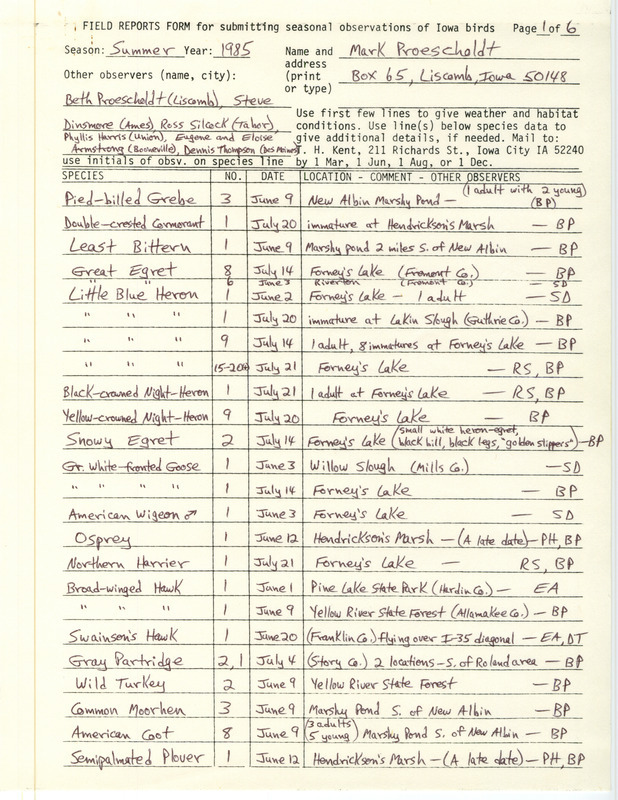 FIELD REPORTS FORM for submitting seasonal observations of Iowa birds Page 1 of 6
Season: Summer Year: 1985 Name and address (print or type) Mark Proescholdt
Box 65, Liscomb, Iowa 50148
Other observers (name, city):
Beth Proescholdt (Liscomb), Steve
Dinsmore (Ames) Ross Silcock (Tabor),
Phyllis Harris (Union), Eugene and Eloise
Armstrong (Booneville), Dennis Thompson (Des Moines)
use initials of obsv. on species line
Use first few lines to give weather and habitat
conditions. Use line(s) below species data to
give additional details, if needed. Mail to:
T. H. Kent, 211 Richards St., Iowa City IA 52240
by 1 Mar, 1 Jun, 1 Aug, or 1 Dec.
SPECIES NO. DATE LOCATION - COMMENT - OTHER OBSERVERS
Pied-billed Grebe 3 June 9 New Albin Marshy Pond — (1 adult with 2 young) (BP)
Double-crested Cormorant 1 July 20 immature at Hendrickson's Marsh — BP
Least Bittern 1 June 9 Marshy pond 2 miles S. of New Albin — BP
Great Egret 8 July 14 Forney's Lake (Fremont Co.) — BP
" " 6 June 3 Riverton (Fremont Co.) — SD
Little Blue Heron 1 June 2 Forney's Lake — 1 adult — SD
" " " 1 July 20 immature at Lakin Slough (Guthrie Co.) — BP
" " " 9 July 14 1 adult, 8 immatures at Forney's Lake — BP
" " " 15-20 July 21 Forney's Lake — RS, BP
Black-crowned Night-Heron 1 July 21 1 adult at Forney's Lake — RS, BP
Yellow-crowned Night-Heron 9 July 20 Forney's Lake — BP
Snowy Egret 2 July 14 Forney's Lake (small white heron-egret, black bill, black legs, "golden slippers") — BP
Gr. White-fronted Goose 1 June 3 Willow Slough (Mills Co.) — SD
" " " " 1 July 14 Forney's Lake — BP
American Wigeon ♂ 1 June 3 Forney's Lake — SD
Osprey 1 June 12 Hendrickson's Marsh — (A late date) — PH, BP
Northern Harrier 1 July 21 Forney's Lake — RS, BP
Broad-winged Hawk 1 June 1 Pine Lake State Park (Hardin Co.) — EA
" " " 1 June 9 Yellow River State Forest (Allamakee Co.) — BP
Swainson's Hawk 1 June 20 (Franklin Co.) flying over I-35 diagonal — EA, DT
Gray Partridge 2, 1 July 4 (Story Co.) 2 locations — S. of Roland area — BP
Wild Turkey 2 June 9 Yellow River State Forest — BP
Common Moorhen 3 June 9 Marshy Pond S. of New Albin — BP
American Coot 8 June 9 (3 adults 5 young) Marshy Pond S. of New Albin — BP
Semipalmated Plover 1 June 12 Hendrickson's Marsh — (A late date) — PH, BP